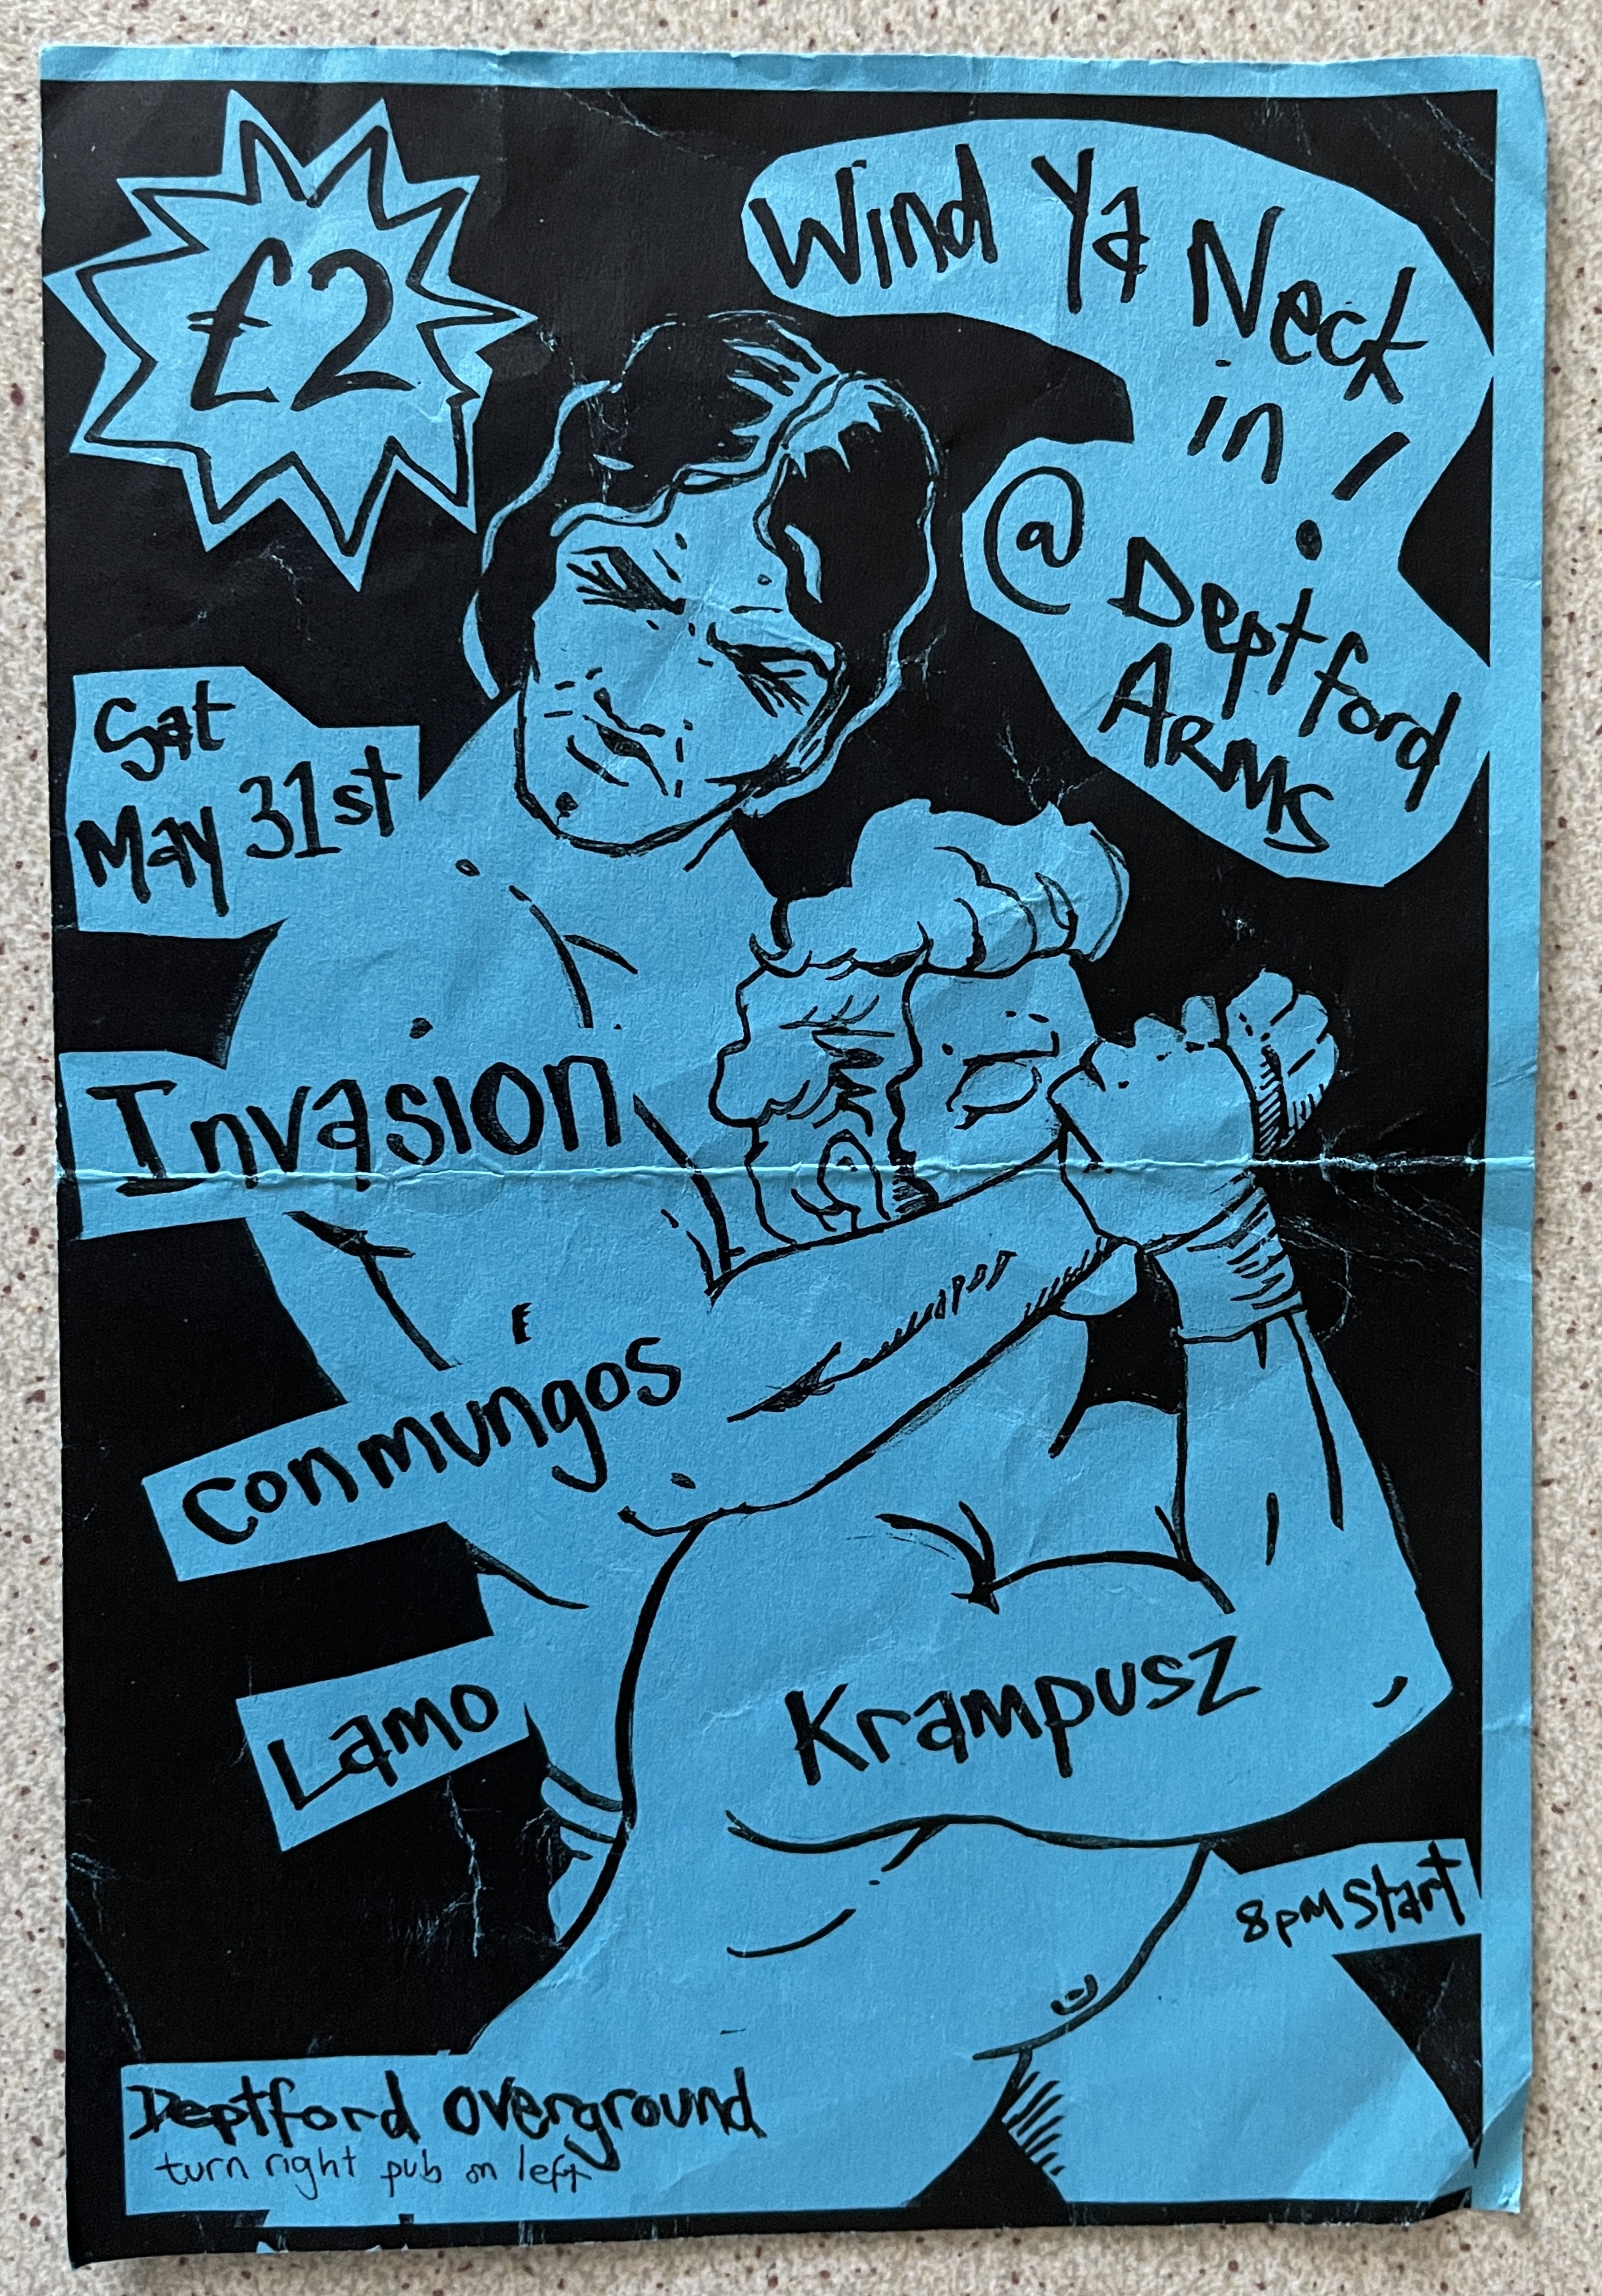 £2
Wind Ya Neck
in !
@ Deptford
ARMS
Sat
May 31st
Invasion
conmungos
Lamo
Krampusz
8pm start
Deptford overground
turn right pub on left